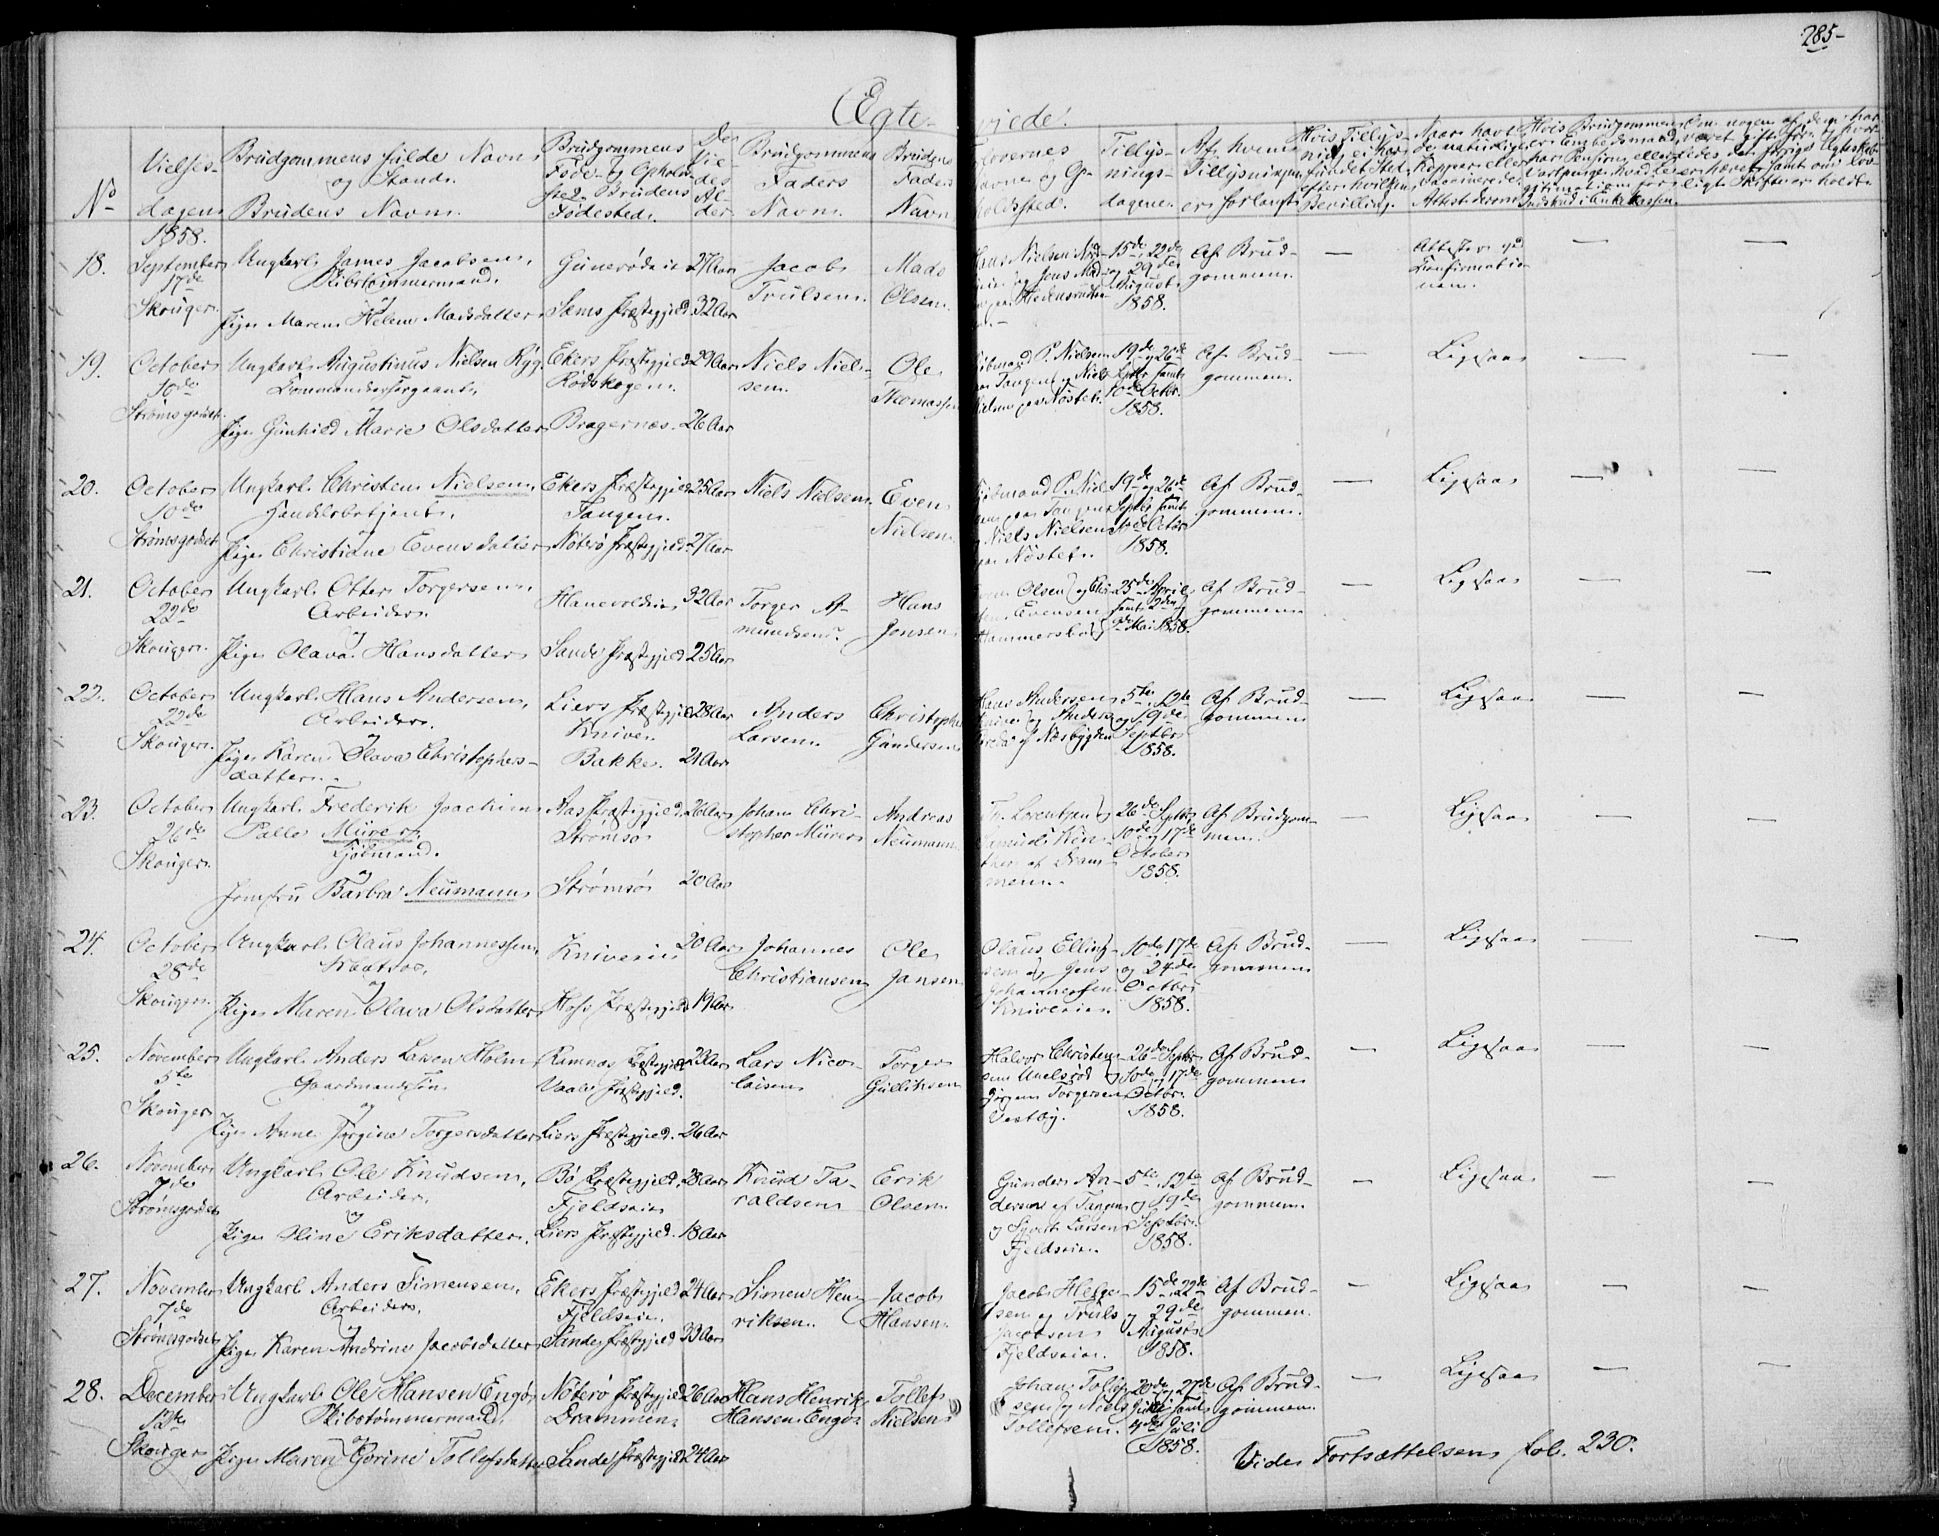 285-
Ægte- viede.
No
Vielses-
dagen
Brudgommens fulde Navn
og Stand.
Brudens Navn.
Brudgommens
Føde- og Opholds-
sted. Brudens
Fødested.
Brudgommens
Faders
Navn.
Brudens
Faders
Navn
Forlovernes
Navne og Op-
holdssted.
Tillys-
nings-
dagene.
Af hvem
Tillysningen
er forlangt
1858.
18. September
17de
Skouger.
Ungkarl James Jacobsen,
Skibstømmermand,
og
Pige Maren Helene Madsdatter
Sems Præstegjeld
27 Aar
32 Aar
Jacob
Trulsen.
Mads
Olsen.
15de, 22de
og 29de
August
1858.
Af Brud-
gommen.
—
—
—
19. October
10de
Strømsgodset.
Ungkarl Augustinus Nielsen Ryg
Commandersergeant,
og
Pige Gunhild Marie Olsdatter
Ekers Præstegjeld
Rødskogen.
Bragernæs.
29 Aar
26 Aar
Niels Niel-
sen.
Ole
Thomassen
19de og 26de
Septbr samt
10de Octbr.
1858.
Af Brud-
gommen.
—
Ligesaa
—
—
20. October
10de
Strømsgodset
Ungkarl Christen Nielsen,
Handelsbetjent,
og
Pige Christiane Evensdatter
Ekers Præstegjeld
Tangen.
Nøterø Præstegjeld
25 Aar
27 Aar
Niels Nielsen.
Even
Nielsen.
og Niels Nielsen
paa Nøstet.
19de og 26de
Septbr samt
10de Octbr
1858.
Af Brud-
gommen.
—
Ligesaa
—
—
21. October
22de
Skouger.
Ungkarl Otter Torgersen,
Arbeider,
og
Pige Olava Hansdatter
Sande Præstegjeld
32 Aar
25 Aar
Torger A-
mundsen.
Hans
Jensen
25de April
samt 2den og
9de Mai 1858.
Af Brud-
gommen
—
Ligesaa
—
—
22. October
22de
Skouger.
Ungkarl Hans Andersen,
Arbeider.
og
Pige Karen Olava Christophers-
datter.
Liers Præstegjeld
Kniven.
Bakke.
28 Aar
21 Aar
Anders
Larsen.
Christopher
Gundersen
Hans Andersen
5te, 12te
og 19de
Septbr
1858.
Af Brud-
gommen
—
Ligesaa
—
—
23. October
26de
Skouger.
Ungkarl Frederik Joachim
Palle Mürer,
Kjøbmand.
og
Jomfru Barbra Neumann,
Aas Præstegjeld
Strømsø
Strømsø
26 Aar
20 Aar
Johan Chri-
stopher Mürer
Andreas
Neumann
Fr. Lorentzen og
26de Septbr
10de og 17de
October
1858.
Af Brudgom-
men.
—
Ligesaa
—
—
24. October
28de
Skouger.
Ungkarl Olaus Johannessen,
Matros,
og
Pige Maren Olava Olsdatter
Kniveeie
Hofs Præstegjeld
20 Aar
19 Aar
Johannes
Christiansen
Ole
Jansen
Olaus Elling-
sen og Jens
Johannessen
Kniveeie.
10de, 17de
og 24de
Octbr
1858.
Af Brud-
gommen
—
Ligesaa
—
—
25. November
5te
Skouger
Ungkarl Anders Larsen Holm,
Gaardmandssøn
og
Pige Anne Torgine Torgersdatter
Ramnæs Præstegjeld
Vaale Præstegjeld.
Liers Præstegjeld.
26 Aar
Lars Nico-
laisen
Torger
Gulliksen
Halvor Christen-
Jørgen Torgersen
Vestby.
26de Septbr
10de og 17de
Octbr.
1858.
Af Brud-
gommen
—
Ligesaa
—
—
26. November
7de
Strømsgodset
Ungkarl Ole Knudsen,
Arbeider,
og
Pige Oline Eriksdatter.
Bø Præstegjeld.
Fjeldseie
Liers Præstegjeld.
28 Aar
18 Aar
Knud Ta-
raldsen
Erik
Olsen.
Gunder An-
dersen af Tangen
og Syvert Larsen
Fjeldseie.
5te, 12te
og 19de
Septbr.
1858.
Af Brud-
gommen.
—
Ligesaa
—
—
27. November
7de
Strømsgodset
Ungkarl Anders Simensen,
Arbeider,
og
Pige Karen Andrine Jacobsdatter
Ekers Præstegjeld
Fjeldseie.
Sande Præstegjeld
24 Aar
33 Aar
Simen Hen-
riksen.
Jacob
Hansen.
Jacob Helge-
sen og Truls
Jacobsen
Fjeldseie.
15de, 22de
og 29de
August
1858.
Af Brud-
gommen.
—
Ligesaa
—
—
28. December
12te
Skouger
Ungkarl Ole Hansen Engø,
Skibstømmermand,
og
Pige Maren Gorine Tollefsdatter
Nøterø Præstegjeld
Drammen.
Sande Præstegjeld
26 Aar
24 Aar
Hans Henrik
Hansen Engø.
Tollef
Nielsen
Johan Tollef-
sen og Niels
Tollefsen.
20de og 27de
Juni samt
4de Juli
1858.
Af Brud-
gommen.
—
Ligesaa
—
—
Vide Fortsættelsen fol. 230.